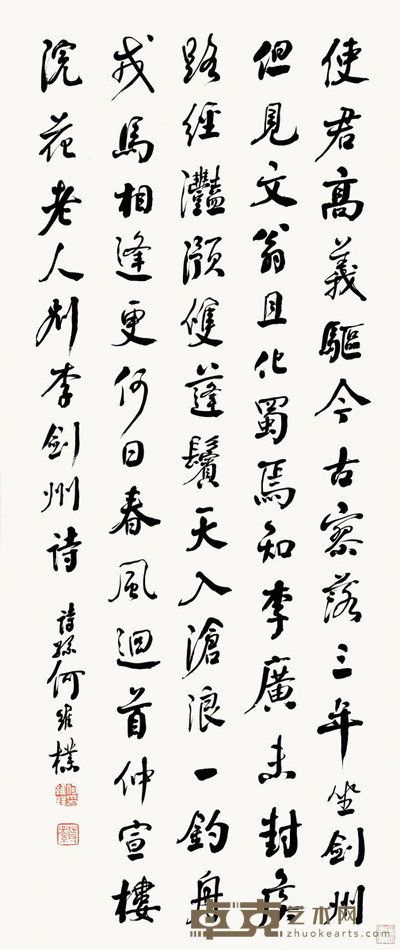 使君高義驅今古寥落三年坐劍州
但見文翁且化蜀焉知李廣未封侯
路經灩澦雙蓬鬢天入滄浪一釣舟
戎馬相逢更何日春風迴首仲宣樓
浣花老人别李劍州詩
詩孫何維樸
艺术网
zhuokearts.com